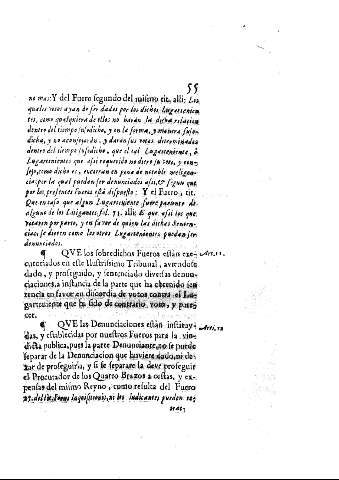 55
no mas: Y del Fuero segundo del mismo tit. alli; Los
quales votos ayan de ser dados por los dichos Lugartenien
tes, como qualquiera de ellos no haràn la dicha relacion
dentro del tiempo susodicho, y en la forma, y manera suso-
dicha, y no aconsejaràn, y daràn sus votos determinados
dentro del tiempo susodicho, que el tal Lugarteniente, ò
Lugartenientes que assi requerido no diere su voto, y con-
sejo, como dicho es, encorran en pena de notable negligen-
cia; por la qual puedan ser denunciados assi, & segun que
por las presentes fueros està dispuesto: Y el Fuero, tit.
Que en caso que algun Lugarteniente fuere pariente de
alguno de los Litigantes, fol. 73. alli; E que assi los que
votaren por parte, y en favor de quien las dichas senten-
cias se dieren como los otros Lugartenientes puedan ser
denunciados.
¶ QVE los sobredichos Fueros estàn exe- Art. 11.
cutoriados en este Ilustrissimo Tribunal, aviendose
dado, y proseguido, y sentenciado diversas denun-
ciaciones, a instancia de la parte que ha obtenido sen
tencia en favor en discordia de votos contra el Lu-
garteniente que ha sido de contrario voto, y pare-
cer.
¶ QVE las Denunciaciones estàn instituy- Art. 12
das, y establecidas por nuestros Fueros para la vin-
dicta publica, pues la parte Denunciante, no se puede
separar de la Denunciacion que huviere dado, ni de-
xar de proseguirla, y si se separare la deve proseguir
el Procurador de los Quatro Brazos a costas, y ex-
pensas del mismo Reyno, como resulta del Fuero
27. del tit. Forus Inquisitionis, ni los indicantes pueden co-